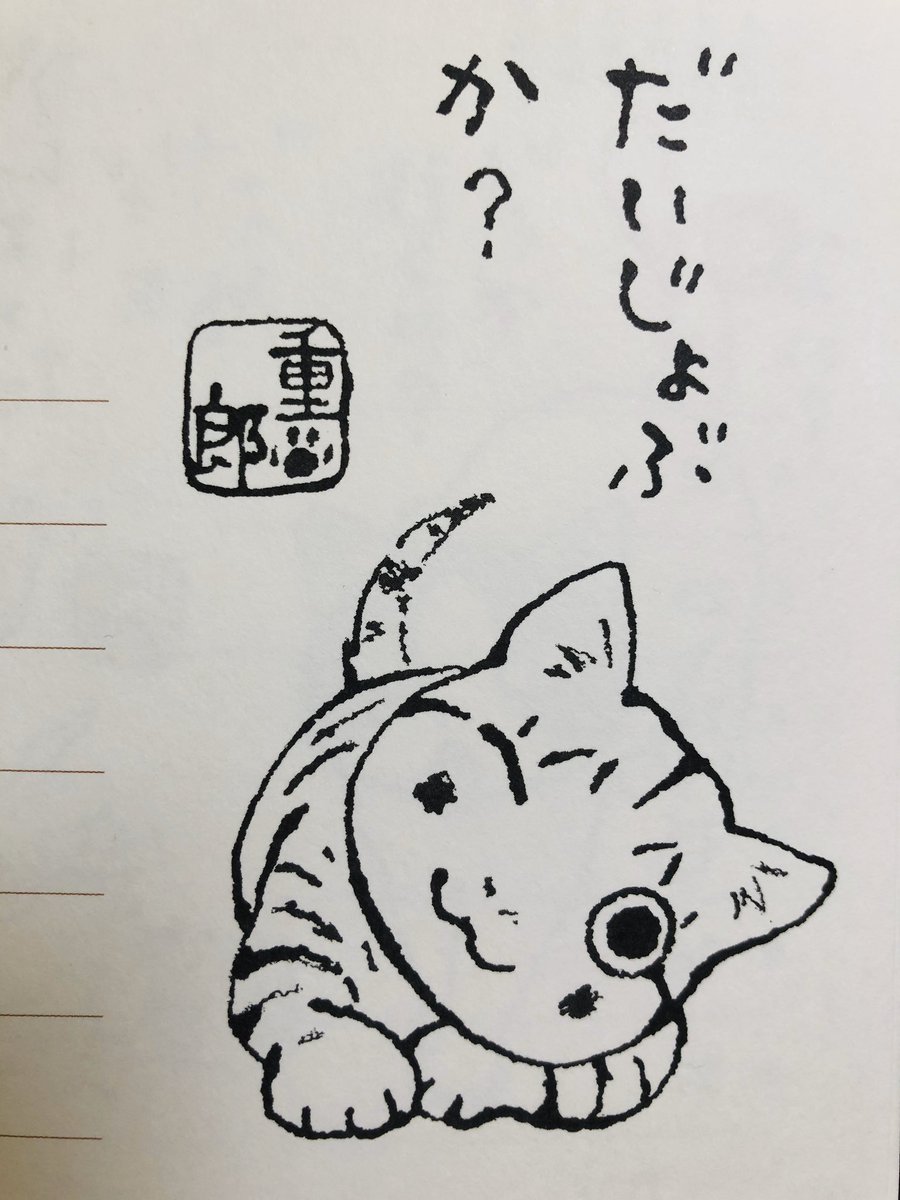 だいじょぶ
か?
重郎